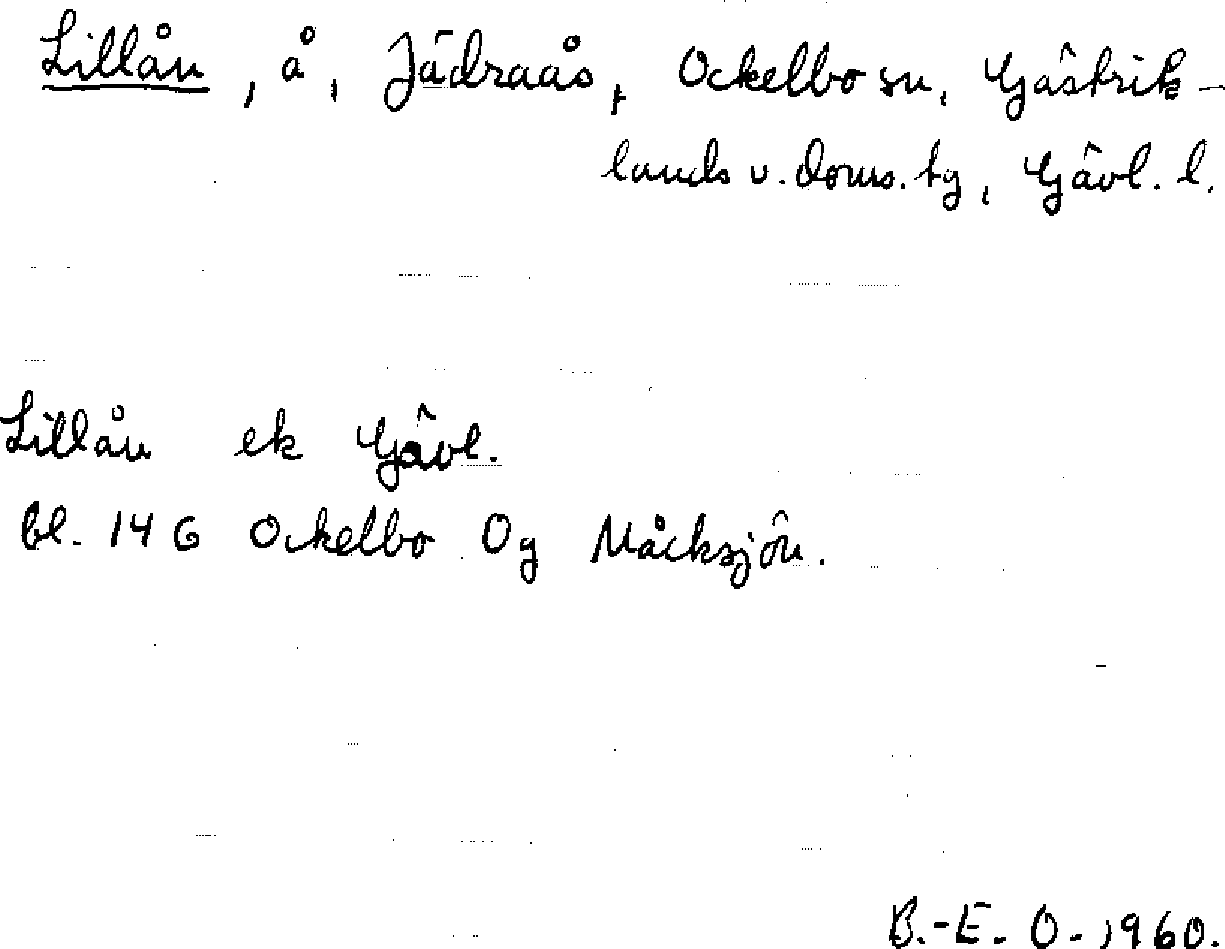 Lillån, å, Jädraås, Ockelbo sn, Gästrik-
lands v. doms. tg, Gävl. l.
Lillån ek Gävl.
bl. 146 Ockelbo Og Måcksjön.
B.-E. O. 1960.